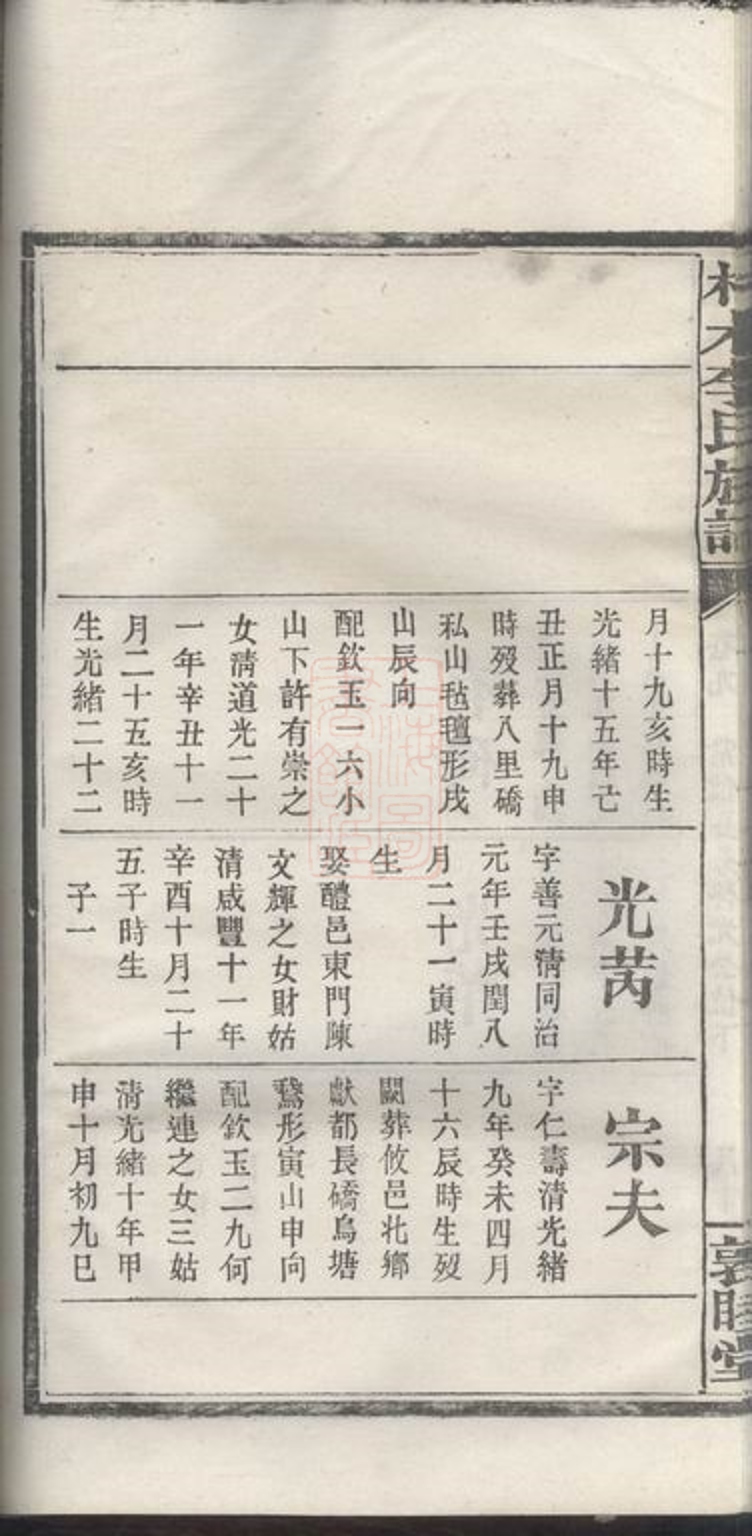 李氏族譜
月十九亥時生
光緒十五年己
丑正月十九申
時歿葬八里礄
私山毡氊形戌
山辰向
配欽玉一六小
山下許有崇之
女淸道光二十
一年辛丑十一
月二十五亥時
生光緒二十二
光苪
字善元淸同治
元年壬戌閏八
月二十一寅時
生
娶醴邑東門陳
文輝之女財姑
清咸豐十一年
辛酉十月二十
五子時生
子一
宗夫
字仁壽清光緒
九年癸未四月
十六辰時生歿
闕葬攸邑北鄉
獻都長礄烏塘
鵞形寅山申向
配欽玉二九何
繼連之女三姑
清光緒十年甲
申十月初九巳
敦睦堂